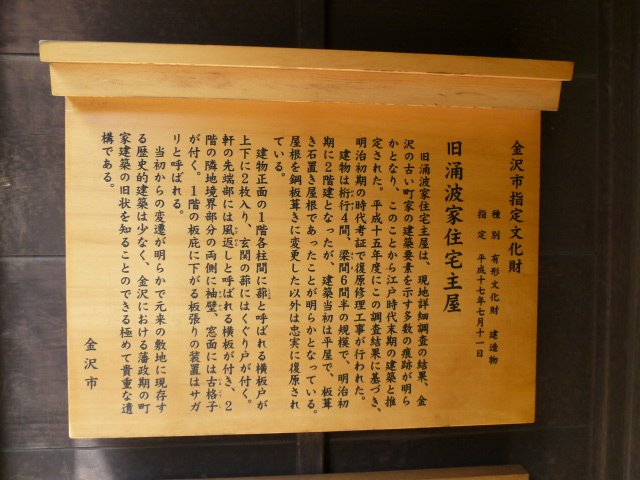 金沢市指定文化財
種別 有形文化財 建造物
指定 平成十七年七月十一日
旧涌波家住宅主屋
旧涌波家住宅主屋は、現地詳細調査の結果、金
沢の古い町家の建築要素を示す多数の痕跡が明ら
かとなり、このことから江戸時代末期の建築と推
定された。平成十五年度にこの調査結果に基づき、
明治初期の時代考証で復原修理工事が行われた。
建物は桁行4間、梁間6間半の規模で、明治初
期に2階建となったが、建築当初は平屋で、板葺
き石置き屋根であったことが明らかとなっている。
屋根を鋼板葺きに変更した以外は忠実に復原され
ている。
建物正面の1階各柱間に蔀と呼ばれる横板戸が
上下に2枚入り、玄関の蔀にはくぐり戸が付く。
軒の先端部には風返しと呼ばれる横板が付き、2
階の隣地境界部分の両側に袖壁、窓面には古格子
が付く。1階の板庇に下がる板張りの装置はサガ
リと呼ばれる。
当初からの変遷が明らかで元来の敷地に現存す
る歴史的建築は少なく、金沢における藩政期の町
家建築の旧状を知ることのできる極めて貴重な遺
構である。
金沢市